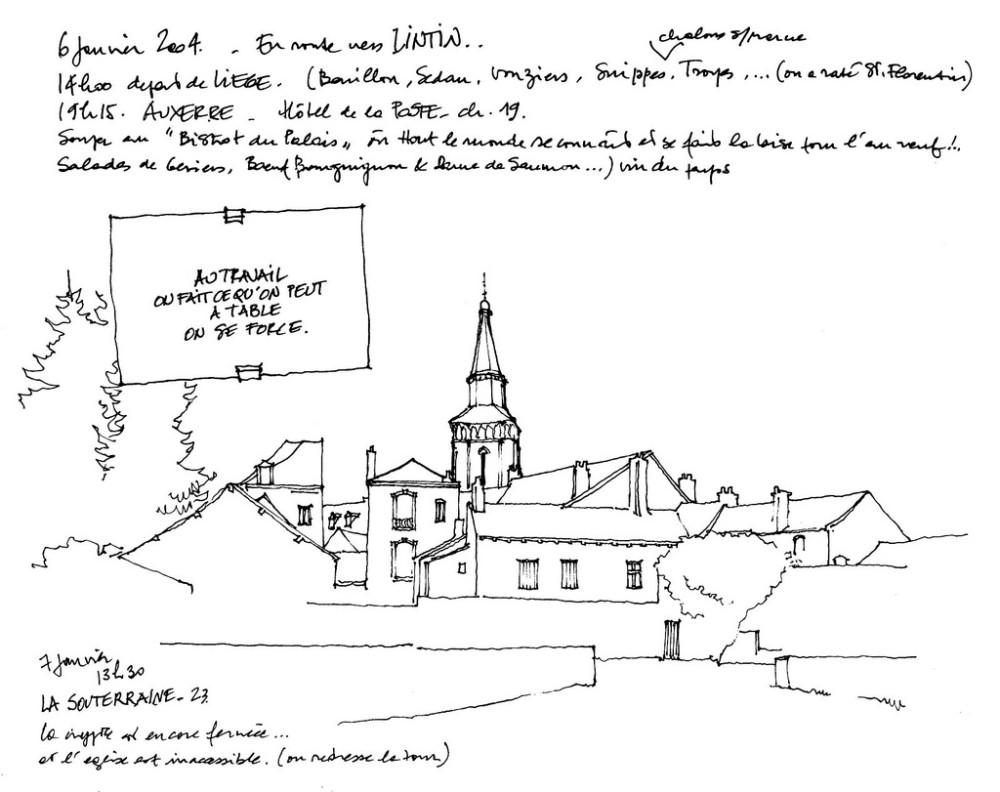 6 Janvier 2004. - En route vers LINTIN..
chalons s/marne
14h00 depart de LIEGE. (Bouillon, Sedan, Vouziers, Suippes, Troyes, ... (on a raté St. Florentin)
19h15. AUXERRE - Hôtel de la POSTE - ch. 19.
Souper au "Bistrot du Palais" où tout le monde se connaît et se fait la bise pour l'an neuf!..
Salades de Gésiers, Boeuf Bourguignon & Darne de Saumon...) vin du pays
AU TRAVAIL
ON FAIT CE QU'ON PEUT
A TABLE
ON SE FORCE.
7 Janvier
13h30
LA SOUTERRAINE - 23.
la crypte est encore fermée...
et l'eglise est inacessible. (on redresse la tour)